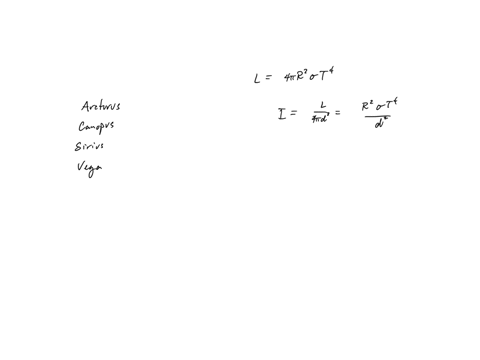 L = 4πR² σT⁴
Arcturus
Canopus
Sirius
Vega
I = L / 4πd² = R² σT⁴ / d²